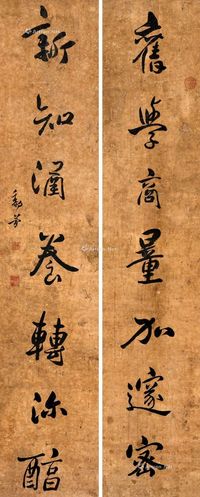 舊學商量加邃密
新知涵養轉深醕